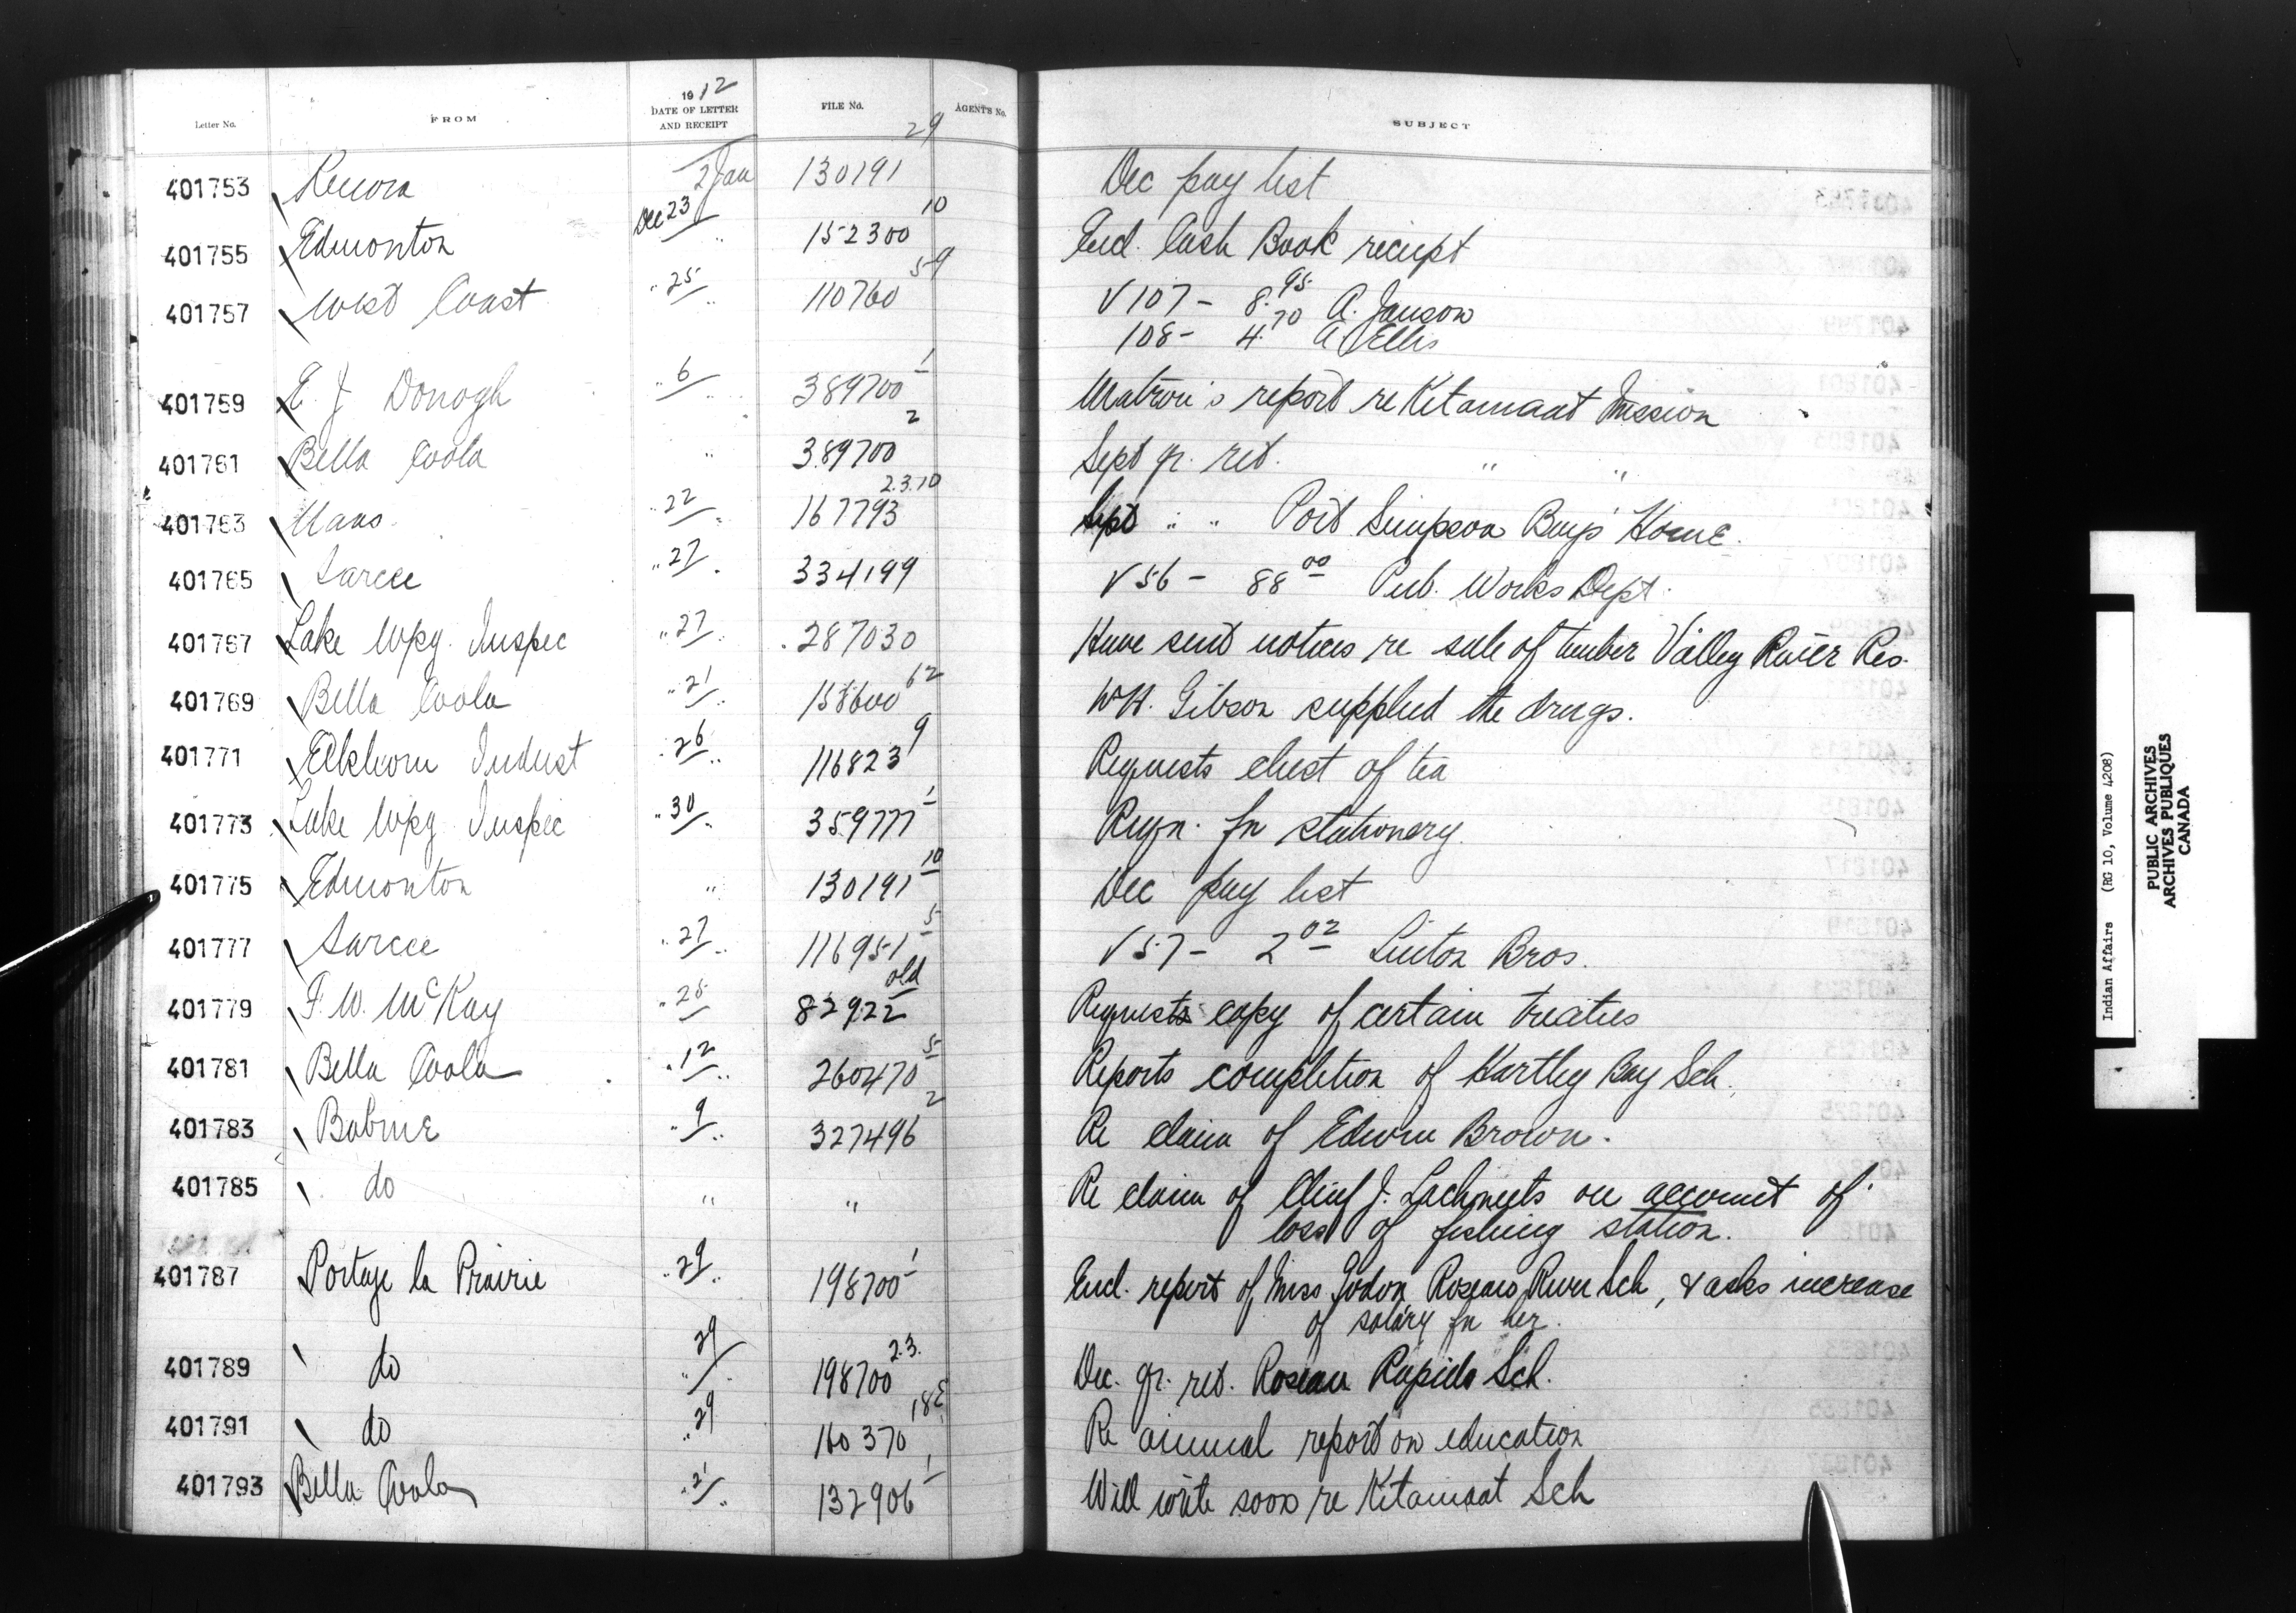 Letter No. FROM 1912 DATE OF LETTER AND RECEIPT FILE No. AGENT'S No. SUBJECT
401753 Kenora 2 Jan 130191 29 Dec pay list
401755 Edmonton Dec 23 " 152300 10 Encl. Cash Book receipt
401757 West Coast " 25 " 110760 59 V 107 - 8.95 A. Janson
108 - 4.70 A Ellis
401759 E. J Donogh " 6 " 389700 1 Matron's report re Kitamaat Mission
401761 Bella Coola " 389700 2 Sept qr. ret. " "
401763 Naas " 22 " 167793 2.3.10 Sept " " Port Simpson Boys' Home.
401765 Sarcee " 27 " 334199 V 56 - 88 00 Pub. Works Dept.
401767 Lake Wpg. Inspec " 27 " 287030 Have sent notices re sale of timber Valley River Res.
401769 Bella Coola " 21 " 158600 62 W H. Gibson supplied the drugs.
401771 Elkhorn Indust " 26 " 116823 9 Requests chest of tea
401773 Lake Wpg Inspec " 30 " 359777 1 Reqn. for stationery.
401775 Edmonton " 130191 10 Dec pay list
401777 Sarcee " 27 " 116951 5 V 57 - 2 02 Linton Bros.
401779 F. W. McKay " 28 " 82922 old Requests copy of certain treaties
401781 Bella Coola " 12 " 260470 5 Reports completion of Hartley Bay Sch.
401783 Babine " 9 " 327496 2 Re claim of Edwin Brown.
401785 do " " Re claim of Chief J. on account of
loss of fishing station.
401787 Portage la Prairie " 29 " 198700 1 Encl. report of Miss Godon Roseau River Sch, & asks increase
of salary for her.
401789 do 29 " 198700 2.3. Dec. qr. ret. Roseau Rapids Sch.
401791 do " 29 160370 18E Re annual report on education
401793 Bella Coola " 21 " 132906 1 Will write soon re Kitamaat Sch
Indian Affairs (RG 10, Volume 4208)
PUBLIC ARCHIVES
ARCHIVES PUBLIQUES
CANADA